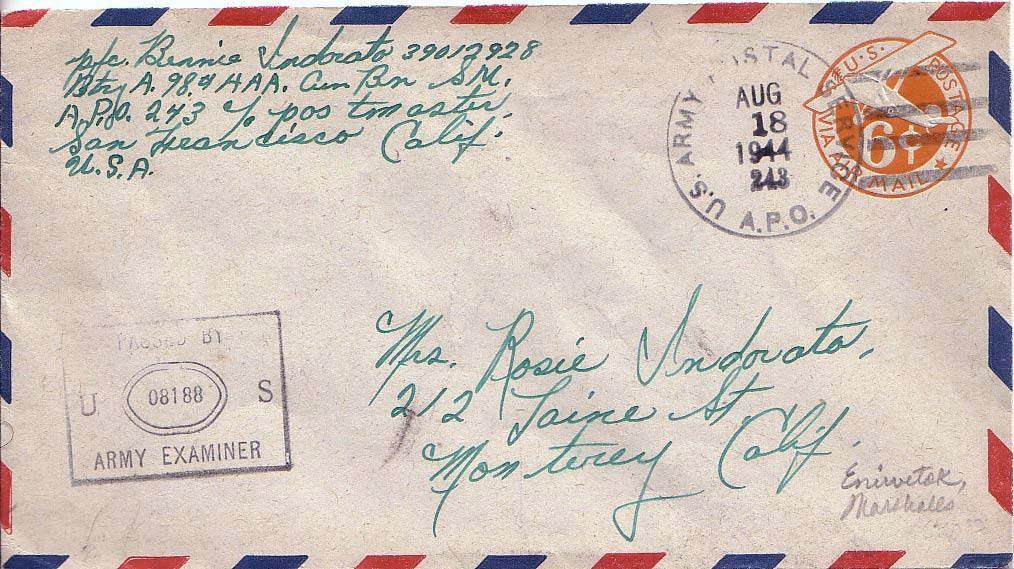 Pfc. Bennie Indorato 39012928
Btry A. 98th AAA. Gun Bn SM.
A.P.O. 243 c/o postmaster
San Francisco Calif.
U.S.A.
U.S. ARMY POSTAL SERVICE
AUG
18
1944
243
A.P.O.
U.S. POSTAGE
6¢
VIA AIR MAIL
PASSED BY
U 08188 S
ARMY EXAMINER
Mrs. Rosie Indorato,
212 Laine St.
Monterey Calif.
Eniwetok,
Marshalls